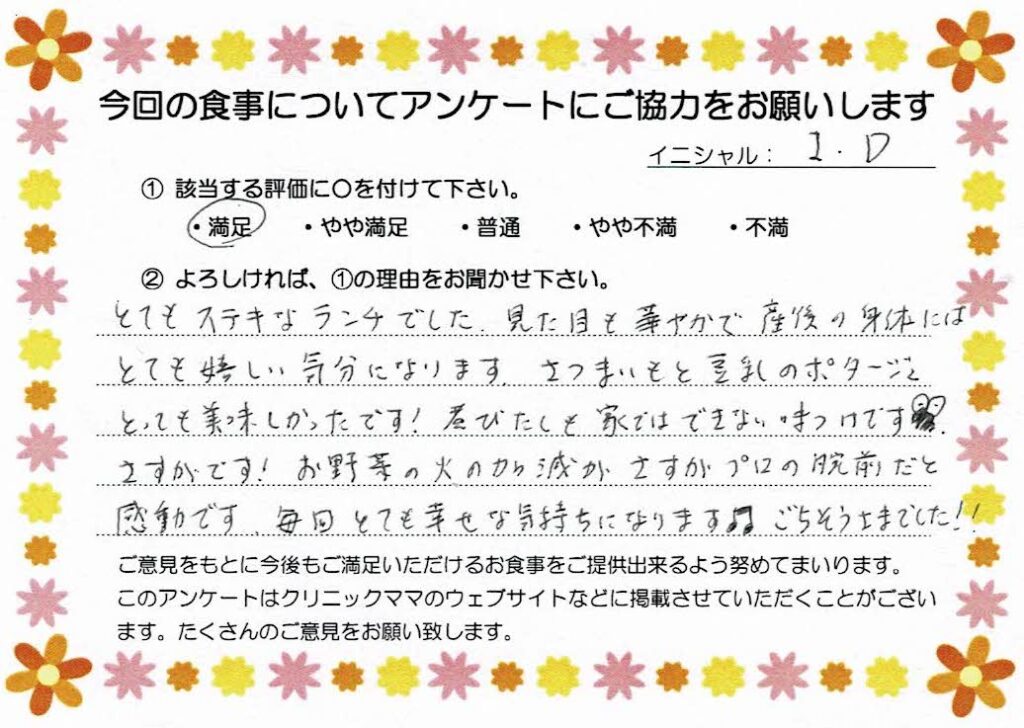 今回の食事についてアンケートにご協力をお願いします
イニシャル： I．D
① 該当する評価に〇を付けて下さい。
・満足 ・やや満足 ・普通 ・やや不満 ・不満
② よろしければ、①の理由をお聞かせ下さい。
とてもステキなランチでした。見た目も華やかで産後の身体には
とても嬉しい気分になります。さつまいもと豆乳のポタージュ
とっても美味しかったです！煮びたしも家ではできない味つけです。
さすがです！お野菜の火のから減が さすがプロの腕前だと
感動です。毎回とても幸せな気持ちになります♫ごちそうさまでした！！
ご意見をもとに今後もご満足いただけるお食事をご提供出来るよう努めてまいります。
このアンケートはクリニックママのウェブサイトなどに掲載させていただくことがござい
ます。たくさんのご意見をお願い致します。